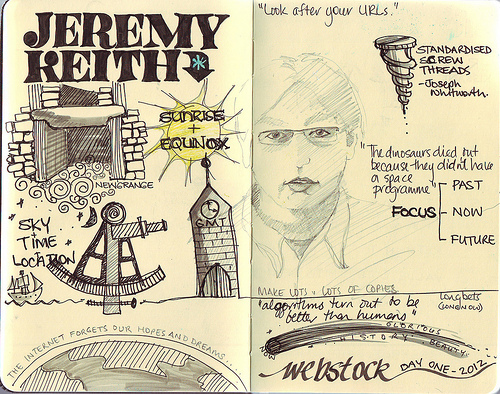 JEREMY
KEITH
SUNRISE
+
EQUINOX
NEWGRANGE
SKY
TIME
LOCATION
GMT
THE INTERNET FORGETS OUR HOPES AND DREAMS...
"Look after your URLs."
STANDARDISED
SCREW
THREADS
- Joseph
Whitworth.
"The dinosaurs died out
because they didn't have
a space
programme"
FOCUS
PAST
NOW
FUTURE
MAKE LOTS + LOTS OF COPIES
"algorithms turn out to be
better than humans"
Longbets
(LONG NOW)
GLORIOUS
HISTORY
BEAUTY
webstock DAY ONE - 2012